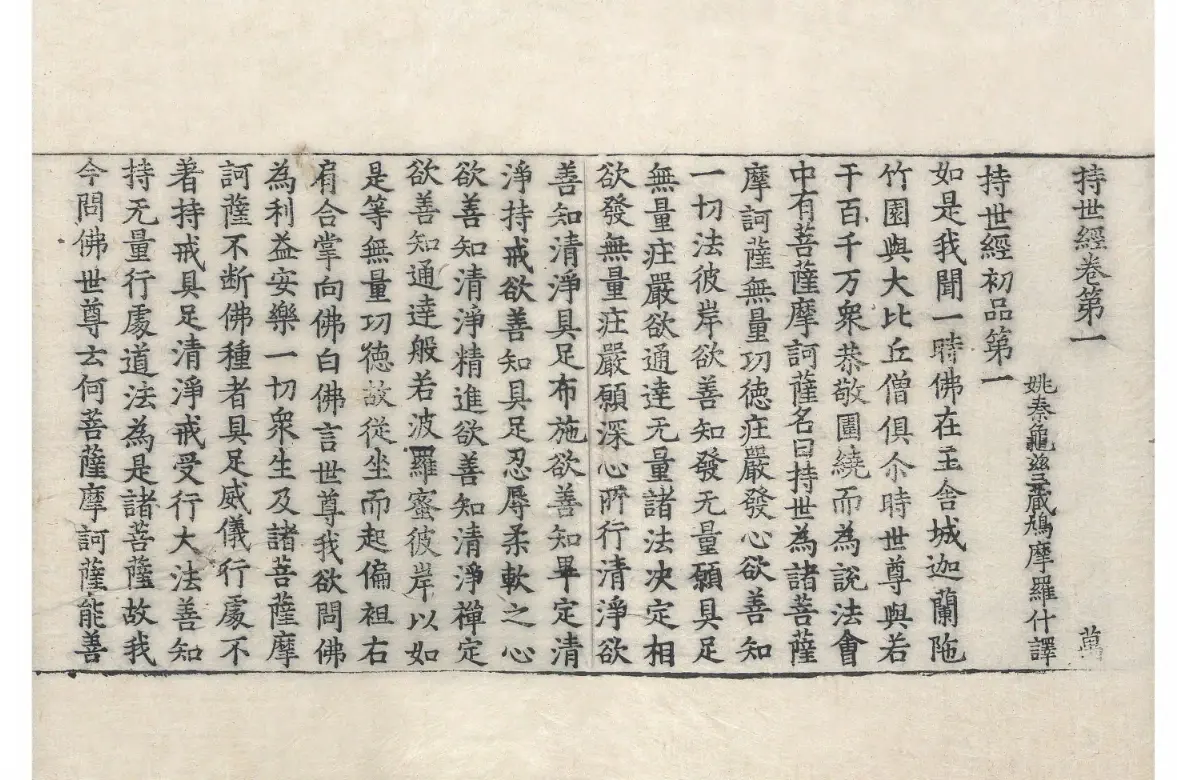 持世經卷第一
萬
姚秦龜茲三藏鳩摩羅什譯
持世經初品第一
如是我聞一時佛在王舍城迦蘭陁
竹園與大比丘僧俱尒時世尊與若
干百千万衆恭敬圍繞而為說法會
中有菩薩摩訶薩名曰持世為諸菩薩
摩訶薩無量功徳庄嚴發心欲善知
一切法彼岸欲善知發无量願具足
無量庄嚴欲通達无量諸法决定相
欲發無量庄嚴願深心所行清淨欲
善知清淨具足布施欲善知畢定清
淨持戒欲善知具足忍辱柔軟之心
欲善知清淨精進欲善知清淨禪定
欲善知通達般若波羅蜜彼岸以如
是等無量功徳故從坐而起偏袒右
肩合掌向佛白佛言世尊我欲問佛
為利益安樂一切衆生及諸菩薩摩
訶薩不断佛種者具足威儀行處不
著持戒具足清淨戒受行大法善知
持无量行處道法為是諸菩薩故我
今問佛世尊云何菩薩摩訶薩能善